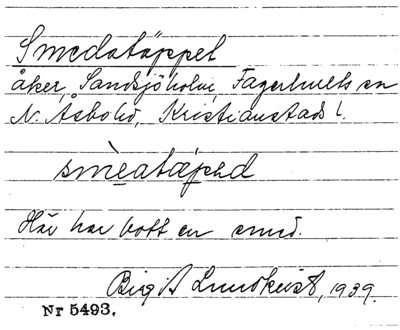 Smedatäppet
åker, Sandsjöholm, Fagerhults sn
N. Åsbo hd, Kristianstads l.
smèatæpəd
Här har bott en smed.
Birgit Lundkvist, 1939
Nr 5493.